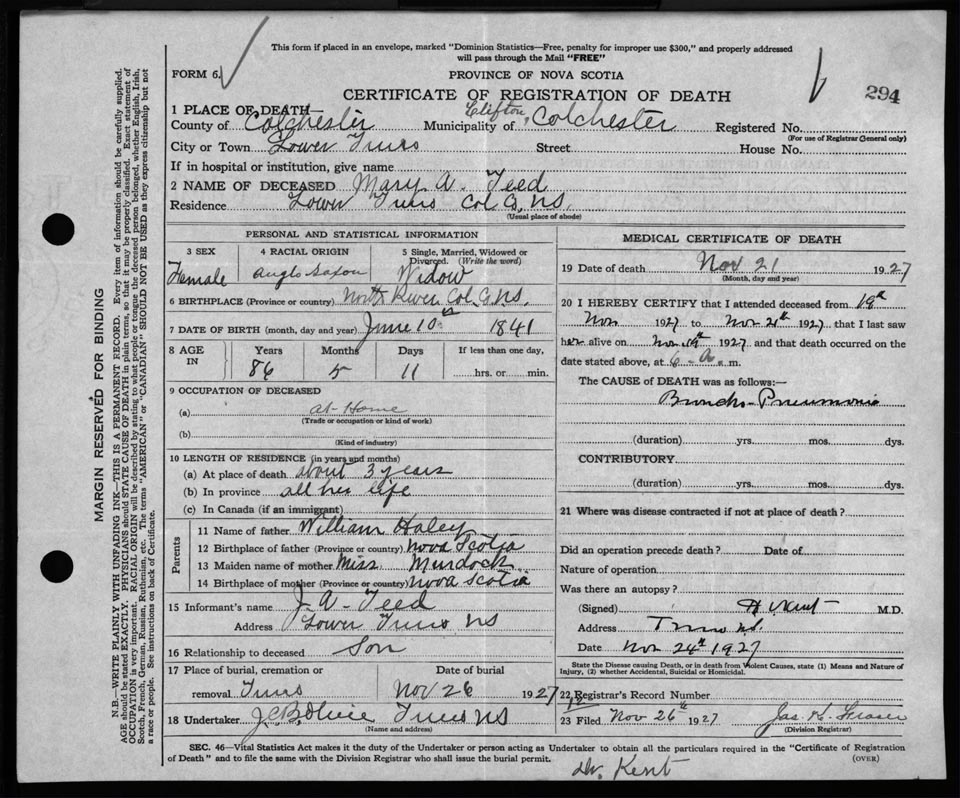 This form if placed in an envelope, marked "Dominion Statistics—Free, penalty for improper use $300," and properly addressed
will pass through the Mail "FREE"
FORM 6.
PROVINCE OF NOVA SCOTIA
294
CERTIFICATE OF REGISTRATION OF DEATH
1 PLACE OF DEATH
Clifton
County of Colchester Municipality of Colchester Registered No.
(For use of Registrar General only)
City or Town Lower Truro Street House No.
If in hospital or institution, give name
2 NAME OF DECEASED Mary A. Teed
Residence Lower Truro Col Co, N.S.
(Usual place of abode)
PERSONAL AND STATISTICAL INFORMATION
3 SEX 4 RACIAL ORIGIN 5 Single, Married, Widowed or Divorced. (Write the word)
Female Anglo Saxon Widow
6 BIRTHPLACE (Province or country) North River Col. Co. N.S.
7 DATE OF BIRTH (month, day and year) June 10th 1841
8 AGE IN Years Months Days If less than one day,
86 5 11 hrs. or min.
9 OCCUPATION OF DECEASED
(a) at Home
(Trade or occupation or kind of work)
(b)
(Kind of industry)
10 LENGTH OF RESIDENCE (in years and months)
(a) At place of death about 3 years
(b) In province all her life
(c) In Canada (if an immigrant)
Parents
11 Name of father William Haley
12 Birthplace of father (Province or country) Nova Scotia
13 Maiden name of mother Miss Murdock
14 Birthplace of mother (Province or country) Nova Scotia
15 Informant's name J. A. Teed
Address Lower Truro NS
16 Relationship to deceased Son
17 Place of burial, cremation or Date of burial
removal Truro Nov 26 1927
18 Undertaker Truro NS
(Name and address)
MEDICAL CERTIFICATE OF DEATH
19 Date of death Nov 21 1927
(Month, day and year)
20 I HEREBY CERTIFY that I attended deceased from 19th
Nov 1927 to Nov 21th 1927 that I last saw
her alive on Nov 19th 1927 and that death occurred on the
date stated above, at 6 a. m.
The CAUSE of DEATH was as follows:—
Broncho Pneumonia
(duration) yrs. mos. dys.
CONTRIBUTORY
(duration) yrs. mos. dys.
21 Where was disease contracted if not at place of death?
Did an operation precede death? Date of
Nature of operation
Was there an autopsy?
(Signed) H Kent M.D.
Address Truro N.S.
Date Nov 24th 1927
State the Disease causing Death, or in death from Violent Causes, state (1) Means and Nature of
Injury, (2) whether Accidental, Suicidal or Homicidal.
22 Registrar's Record Number
23 Filed Nov 26th 1927 Jas. K. Fraser
(Division Registrar)
SEC. 46—Vital Statistics Act makes it the duty of the Undertaker or person acting as Undertaker to obtain all the particulars required in the "Certificate of Registration
of Death" and to file the same with the Division Registrar who shall issue the burial permit.
(OVER)
Dr. Kent
MARGIN RESERVED FOR BINDING
N.B.—WRITE PLAINLY WITH UNFADING INK—THIS IS A PERMANENT RECORD. Every item of information should be carefully supplied.
AGE should be stated EXACTLY. PHYSICIANS should STATE CAUSE OF DEATH in plain terms, so that it may be properly classified. Exact statement of
OCCUPATION is very important. RACIAL ORIGIN will be described by stating to what people or tongue the deceased person belonged, whether English, Irish,
Scotch, French, German, Russian, Ruthenian, etc. The terms "AMERICAN" or "CANADIAN" SHOULD NOT BE USED as they express citizenship but not
a race or people. See instructions on back of Certificate.